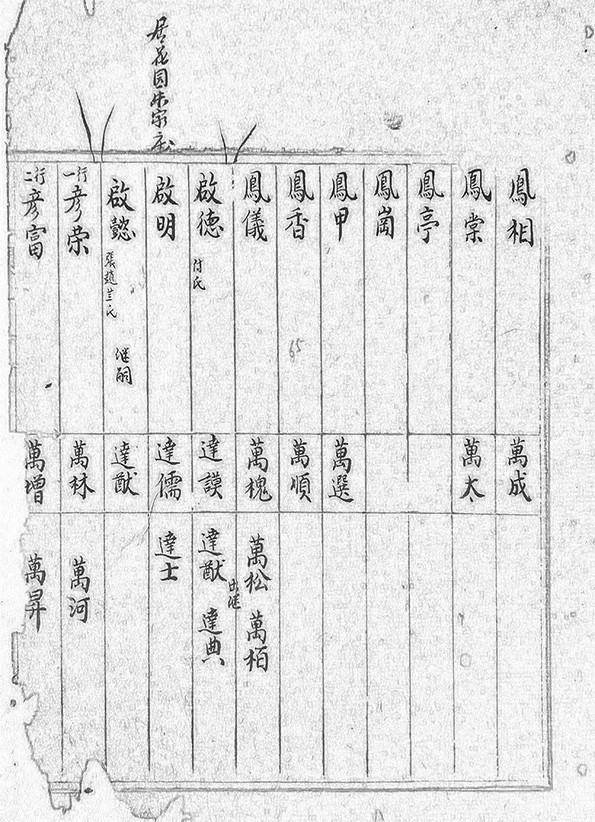 居花园朱家庄
鳳相
萬成
鳳棠
萬太
鳳亭
鳳崗
鳳甲
萬選
鳳香
65
萬順
鳳儀
萬槐
萬松 萬栢
啟德
付氏
達謨
達猷 出继 達典
啟明
達儒
達士
啟懿
張趙兰氏 继嗣
達猷
一行 彦荣
萬林
萬河
二行 彦富
萬增
萬昇